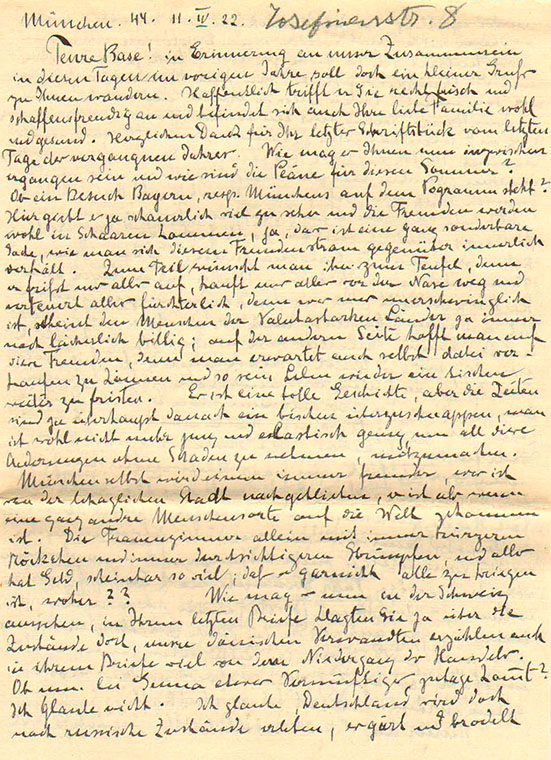 München. 44. 11. IV. 22. Josefinenstr. 8
Teure Base! in Erinnerung an unser Zusammensein
in diesen Tagen im vorigen Jahre, soll doch ein kleiner Gruß
zu Ihnen wandern. Hoffentlich trifft er Sie recht frisch und
schaffensfreudig an und befindet sich auch Ihre liebe Familie wohl
und gesund. Herzlichen Dank für Ihr letztes Schriftstück vom letzten
Tage des vergangnen Jahres. Wie mag es Ihnen nun inzwischen
ergangen sein und wie sind die Pläne für diesen Sommer?
Ob ein Besuch Bayern, resp. Münchens auf dem Programm steht?
Hier giebt es ja schauerlich viel zu sehen und die Fremden werden
wohl in Schaaren kommen, ja, das ist eine ganz sonderbare
Sache, wie man sich diesem Fremdenstrom gegenüber innerlich
verhält. Zum Teil wünscht man ihn zum Teufel, denn
er frißt uns alles auf, kauft uns alles vor der Nase weg und
verteuert alles fürchterlich, denn was uns unerschwinglich
ist, scheint den Menschen der Valutastarken Länder ja immer
noch lächerlich billig; auf der andern Seite hofft man auf
diese Fremden, denn man erwartet auch selbst dabei ver-
kaufen zu können und so sein Leben wieder ein bischen
weiter zu fristen. Es ist eine tolle Geschichte, aber die Zeiten
sind ja überhaupt danach ein bischen überzuschnappen, man
ist wohl nicht mehr jung und elastisch genug, um all diese
Änderungen ohne Schaden zu nehmen, mitzumachen.
München selbst wird einem immer fremder, was ist
von der behaglichen Stadt nachgeblieben, es ist als wenn
eine ganz andre Menschensorte auf die Welt gekommen
ist. Die Frauenzimmer allein mit immer kürzeren
Röckchen und immer durchsichtigeren Strümpfen, und alles
hat Geld, scheinbar so viel, daß es garnicht alle zu kriegen
ist, woher?? Wie mag es nun in der Schweiz
aussehen, in Ihrem letzten Briefe klagten Sie ja über die
Zustände dort, unsre dänischen Verwandten erzählen auch
in ihrem Briefe viel von dem Niedergang des Handels.
Ob nun bei Genua etwas Vernünftiges zutage kommt?
Ich glaube nicht. Ich glaube, Deutschland wird doch
noch russische Zustände erleben, es gärt und brodelt